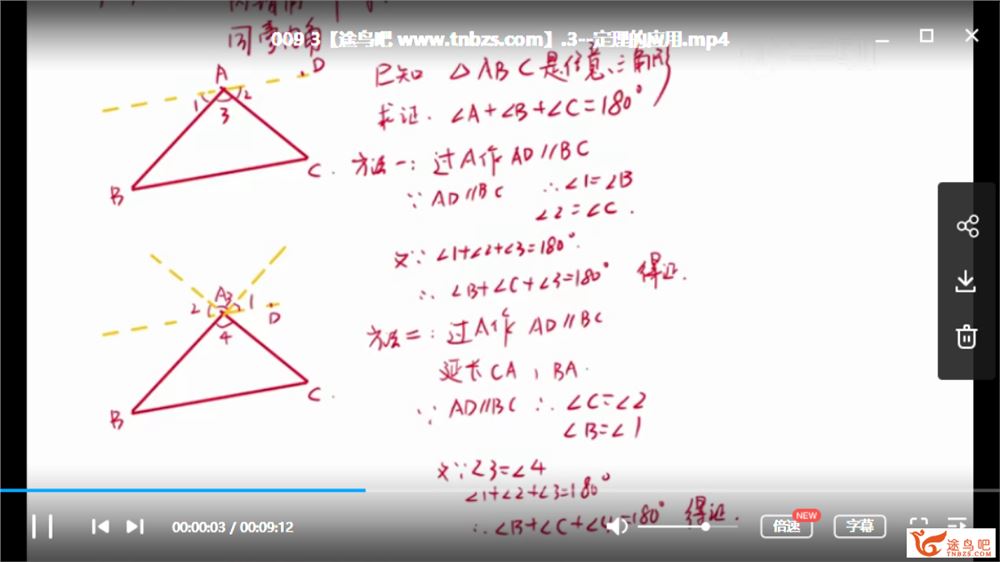 同旁内角
009 3【途鸟吧 www.tnbzs.com】.3--定理的应用.mp4
A D
1 2
3
B C
已知 △ABC是任意三角形
求证. ∠A+∠B+∠C=180°
方法一: 过A作 AD∥BC
∵ AD∥BC ∴∠1=∠B
∠2=∠C.
又∵ ∠1+∠2+∠3=180°.
∴ ∠B+∠C+∠3=180° 得证.
A 3
2 1
D
4
B C
方法二: 过A作 AD∥BC
延长CA, BA.
∵ AD∥BC ∴ ∠C=∠2
∠B=∠1
又∵∠3=∠4
∠1+∠2+∠3=180°
∴∠B+∠C+∠4=180° 得证.
00:00:03 / 00:09:12
倍速
NEW
字幕
途鸟吧
TNBZS.COM